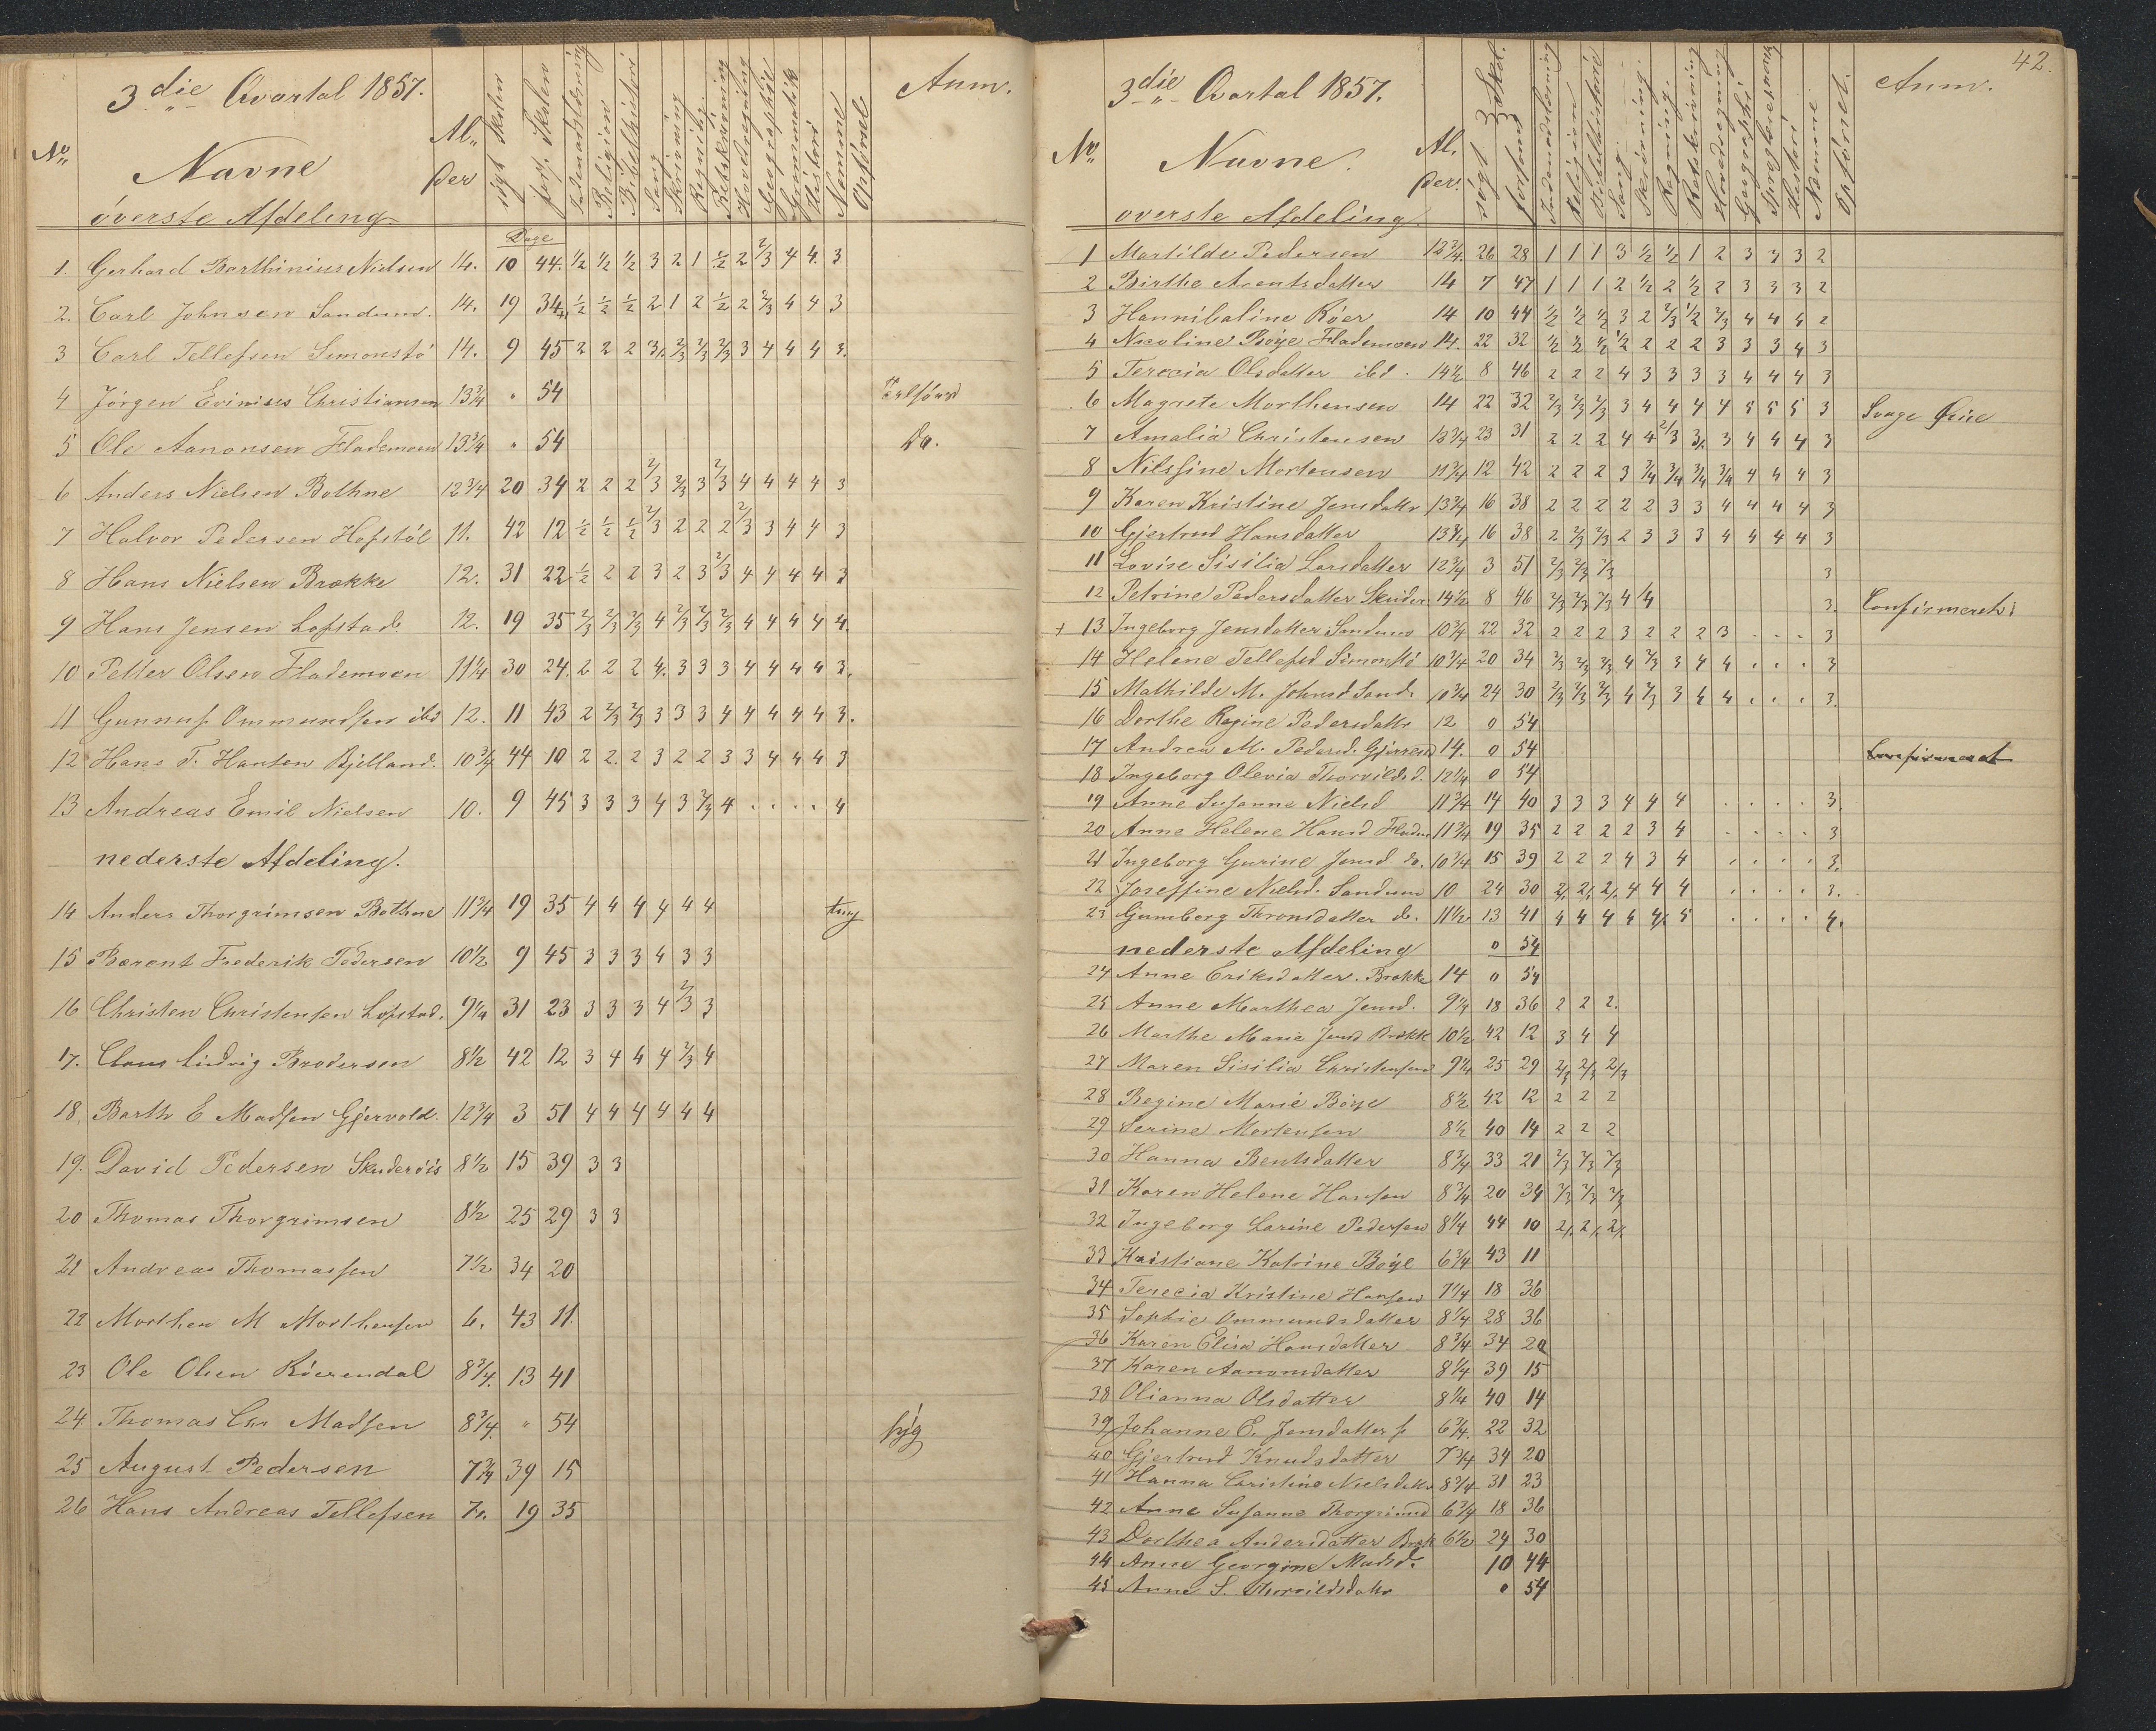 3die Qvartal 1857.
No
Navne
Al.
der
søgt Skolen
fors. Skolen
Religion
Bibelhistori
Sang
Skrivning
Regning
Retskrivning
Hovedregning
Geographie
Grammatik
Histori
Nemme
Opførsel
Anm.
øverste Afdeling
Dage
1. Gerhard Barthinius Nielsen 14. 10 44. ½ ½ ½ 3 2 1 ½ 2 2/3 4 4. 3
2. Carl Johnsen Sandum. 14. 19 34 ½ ½ ½ 2 1 2 ½ 2 2/3 4 4 3
3 Carl Tellefsen Simonstø 14. 9 45 2 2 2 3. 2/3 2/3 2/3 3 4 4 4 3.
4 Jørgen Christiansen 13¾ " 54
5 Ole Aanonsen Flademoen 13¾ " 54 Do.
6 Anders Nielsen Bothne 12¾ 20 34 2 2 2 2/3 2/3 3 2/3 4 4 4 4 3
7 Halvor Pedersen Hofstøl 11. 42 12 ½ ½ ½ 2/3 2 2 2 2/3 3 4 4 3
8 Hans Nielsen Brække 12. 31 22 ½ 2 2 3 2 3 2/3 4 4 4 4 3
9 Hans Jensen Lofstad. 12. 19 35 2/3 2/3 2/3 4 2/3 2/3 2/3 4 4 4 4 4.
10 Petter Olsen Flademoen 11¼ 30 24. 2 2 2 4. 3 3 3 4 4 4 4 3.
11 Gunnuf Ommundsen ibd 12. 11 43 2 2/3 2/3 3 3 3 4 4 4 4 4 3.
12 Hans T. Hansen Bjelland. 10¾ 44 10 2 2. 2 3 2 2 3 3 4 4 4 3
13 Andreas Emil Nielsen 10. 9 45 3 3 3 4 3 2/3 4 . . . . 4
nederste Afdeling.
14 Anders Thorgrimsen Bothne 11¾ 19 35 4 4 4 4 4 4 tung
15 Barent Frederik Pedersen 10½ 9 45 3 3 3 4 3 3
16 Christen Christensen Lofstad. 9¼ 31 23 3 3 3 4 2/3 3
17. Claus Ludvig Brodersen 8½ 42 12 3 4 4 4 2/3 4
18. Barth E Madsen Gjervold. 12¾ 3 51 4 4 4 4 4 4
19. David Pedersen Skuderøis 8½ 15 39 3 3
20 Thomas Thorgrimsen 8½ 25 29 3 3
21 Andreas Thomassen 7½ 34 20
22 Morthen M Morthensen 6. 43 11.
23 Ole Olsen 8¾. 13 41
24 Thomas Chr Madsen 8¾. " 54 syg
25 August Pedersen 7¾ 39 15
26 Hans Andreas Tellefsen 7. 19 35
42.
3die Qvartal 1857.
No
Navne.
Al.
der.
søgt Skol.
forsømt
Religion
Bibelhistorie
Sang.
Skrivning.
Regning.
Retskrivning
Hovedregning
Geographi
Histori
Nemme
Opførsel.
Anm.
øverste Afdeling
1 Martilde Pedersen 12¾. 26 28 1 1 1 3 ½ ½ 1 2 3 3 3 2
2 Birthe Arentsdatter 14 7 47 1 1 1 2 ½ 2 ½ 2 3 3 3 2
3 Hannibaline Røer 14 10 44 ½ ½ ½ 3 2 2/3 ½ 2/3 4 4 4 2
4 Nicoline Bøye Flademoen 14. 22 32 ½ ½ ½ ½ 2 2 2 3 3 3 4 3
5 Terecia Olsdatter ibd. 14½ 8 46 2 2 2 4 3 3 3 3 4 4 4 3
6 Magrete Morthensen 14 22 32 2/3 2/3 2/3 3 4 4 4 4 5 5 5 3 Svage Øine
7 Amalia Christensen 13¾ 23 31 2 2 2 4 4 2/3 3. 3 4 4 4 3
8 Nilsine Mortensen 11¾ 12 42 2 2 2 3 ¾ ¾ ¾ ¾ 4 4 4 3
9 Karen Kristine Jensdattr 13¾ 16 38 2 2 2 2 2 3 3 4 4 4 4 3
10 Gjertrud Hansdatter 13¾ 16 38 2 2/3 2/3 2 3 3 3 4 4 4 4 3
11 Lovise Sisilia Larsdatter 12¾ 3 51 2/3 2/3 2/3 3
12 Petrine Pedersdatter Skuder 14½ 8 46 2/3 2/3 2/3 4 4 3. Confirmeret
+ 13 Ingeborg Jensdatter Sandum 10¾ 22 32 2 2 2 3 2 2 2 3 . . . 3
14 Helene Tellefsd Simonstø 10¾ 20 34 2/3 2/3 2/3 4 2/3 3 4 4 . . . 3
15 Mathilde M. Johnsd Sand. 10¾ 24 30 2/3 2/3 2/3 4 2/3 3 4 4 . . . 3.
16 Dorthe Regine Pedersdattr 12 0 54
17 Andrea M. Pedersd. 14. 0 54 Confirmeret
18 Ingeborg Olevia Thorvildsd. 12¼ 0 54
19 Anne Susanne Nielsd 11¾ 14 40 3 3 3 4 4 4 . . . . 3.
20 Anne Helene Hansd Fladm 11¾ 19 35 2 2 2 2 3 4 . . . . 3
21 Ingeborg Gurine Jensd do. 10¾ 15 39 2 2 2 4 3 4 . . . . 3.
22 Joseffine Nielsd. Sandum 10 24 30 2. 2. 2. 4 4 4 . . . . 3.
23 Gumborg Thronsdatter do. 11½ 13 41 4 4 4 4 4. 5 . . . . 4.
nederste Afdeling 0 54
24 Anne Eriksdatter. Brække 14 0 54
25 Anne Marthea Jensd. 9¼ 18 36 2 2 2.
26 Marthe Maria Jensd Brække 10½ 42 12 3 4 4
27 Maren Sisilia Christensen 9¼ 25 29 2/3 2/3 2/3
28 Regine Marie Bøye 8½ 42 12 2 2 2
29 Serine Mortensen 8½ 40 14 2 2 2
30 Hanna Bentsdatter 8¾ 33 21 2/3 2/3 2/3
31 Karen Helene Hansen 8¾ 20 34 2/3 2/3 2/3
32 Ingeborg Larine Pedersen 8¼ 44 10 2. 2. 2.
33 Kristiane Katrine Bøye 6¾ 43 11
34 Terecia Kristine Hansen 7¼ 18 36
35 Sophie Ommundsdatter 8¼ 28 36
36 Karen Elisa Hansdatter 8¾ 34 20
37 Karen Aanonsdatter 8¼ 39 15
38 Olianna Olsdatter 8¼ 40 14
39 Johanne E. Jensdatter 6¾. 22 32
40 Gjertrud Knudsdatter 7¾ 34 20
41 Hanna Christine Nielsdatr 8¾ 31 23
42 Anne Susanne Thorgrimsd 6¾ 18 36
43 Dorthea Andersdatter Bræk 6½ 24 30
44 Anne Georgine Madsd. 10 44
45 Anne S. Thorvildsdattr 0 54